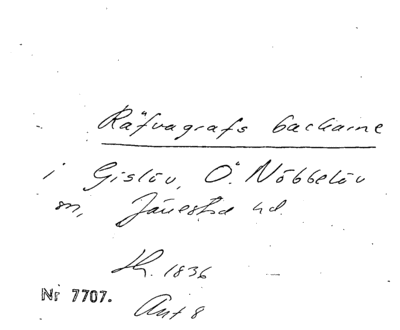 Räfvagrafs backarne
i Gislöv, Ö. Nöbbelöv
sn, Järrestad hd.
Sk. 1836
Nr 7707.
Ant 8